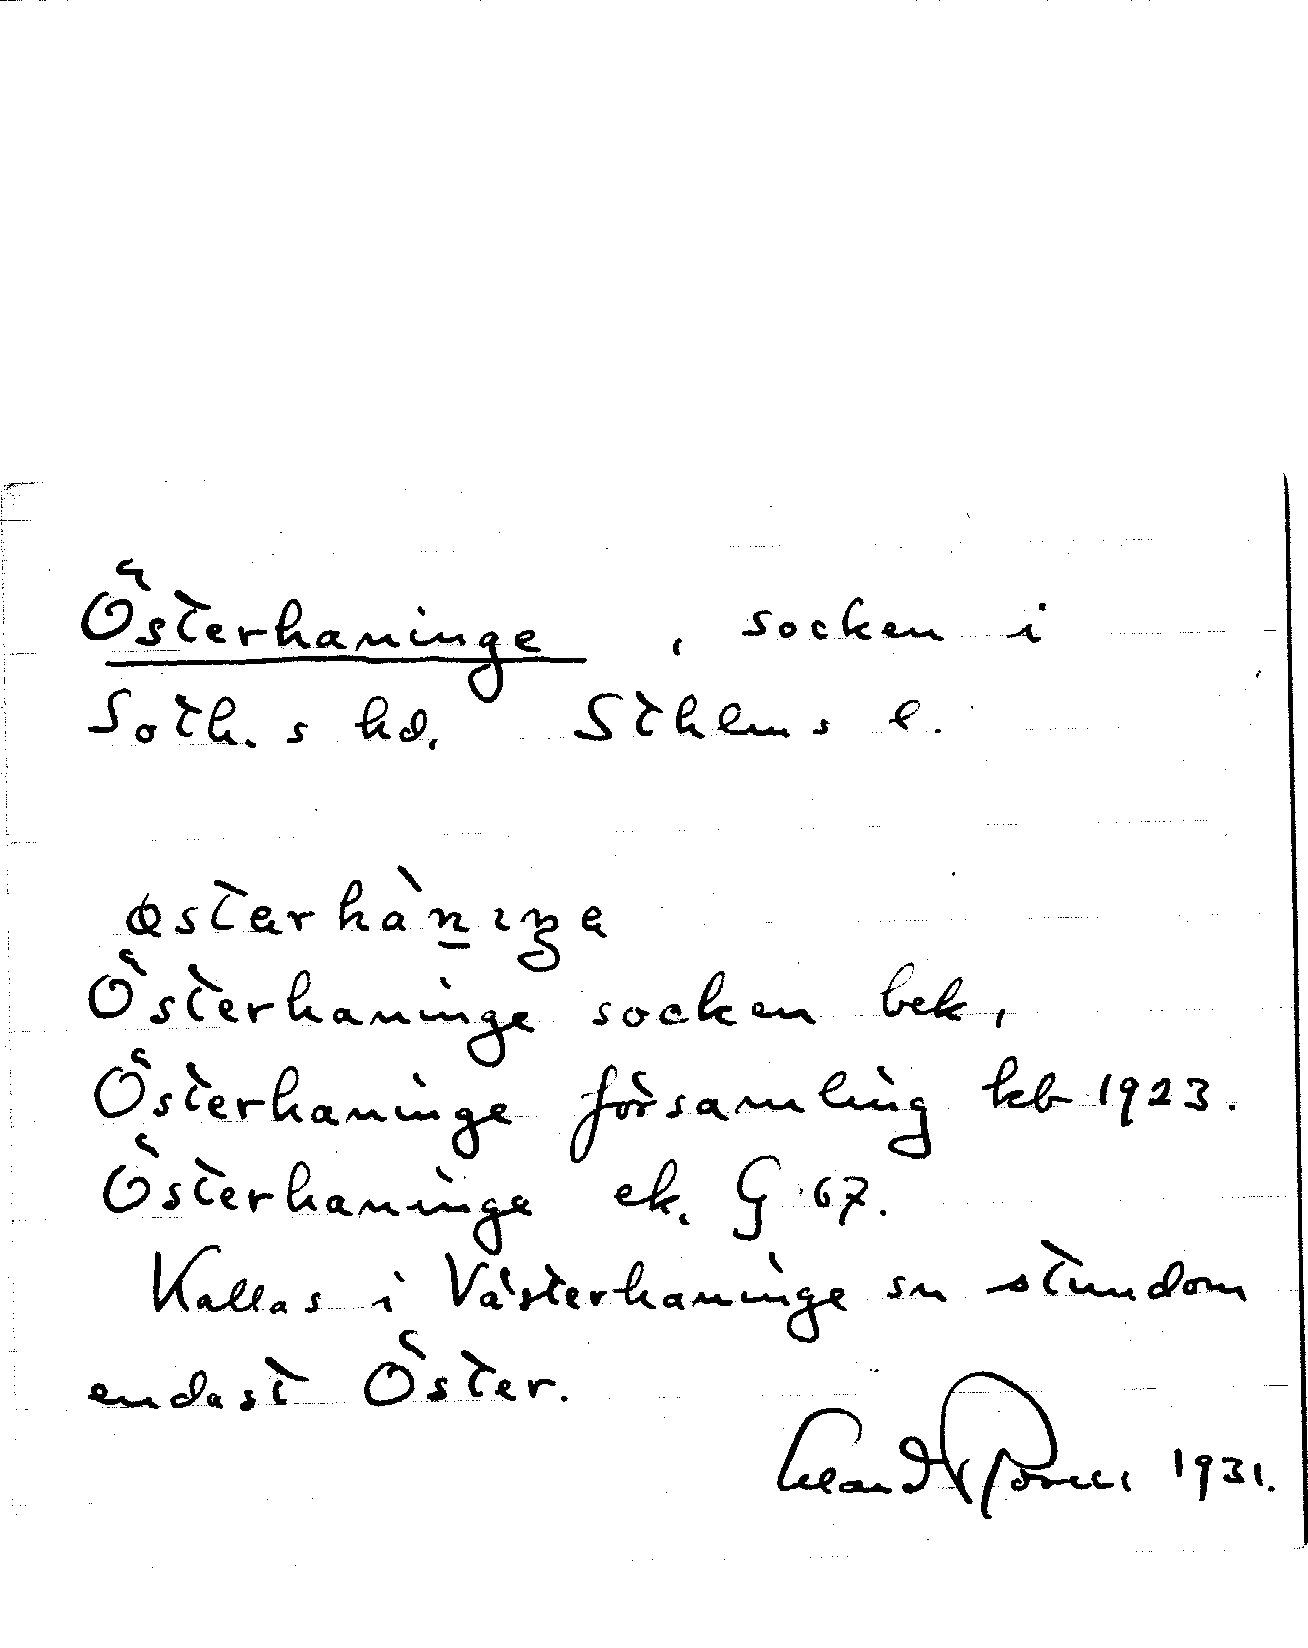 Österhaninge, socken i
Soth.s hd. Sthlms l.
Österhaninge socken bek,
Österhaninge församling kb 1923.
Österhaninge ek. G 67.
Kallas i Västerhaninge sn stundom
endast Öster.
1931.